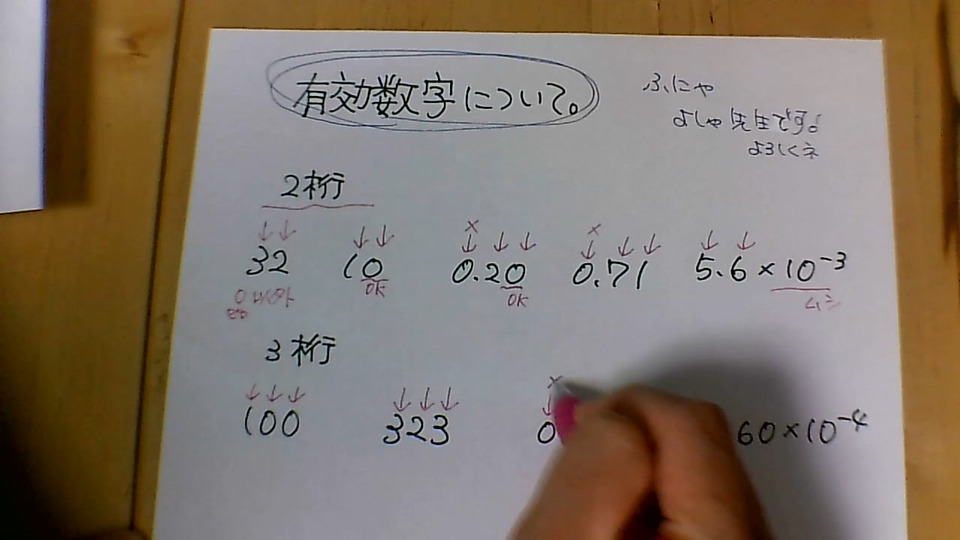 有効数字について。
ふにゃ
よしゃ先生です。
よろしくネ
2桁
↓↓ ↓↓ ×↓↓↓ ×↓↓↓ ↓↓
32 10 0.20 0.71 5.6×10⁻³
0以外 OK OK ムシ
3桁
↓↓↓ ↓↓↓ ×↓
100 323 0 60×10⁻⁴